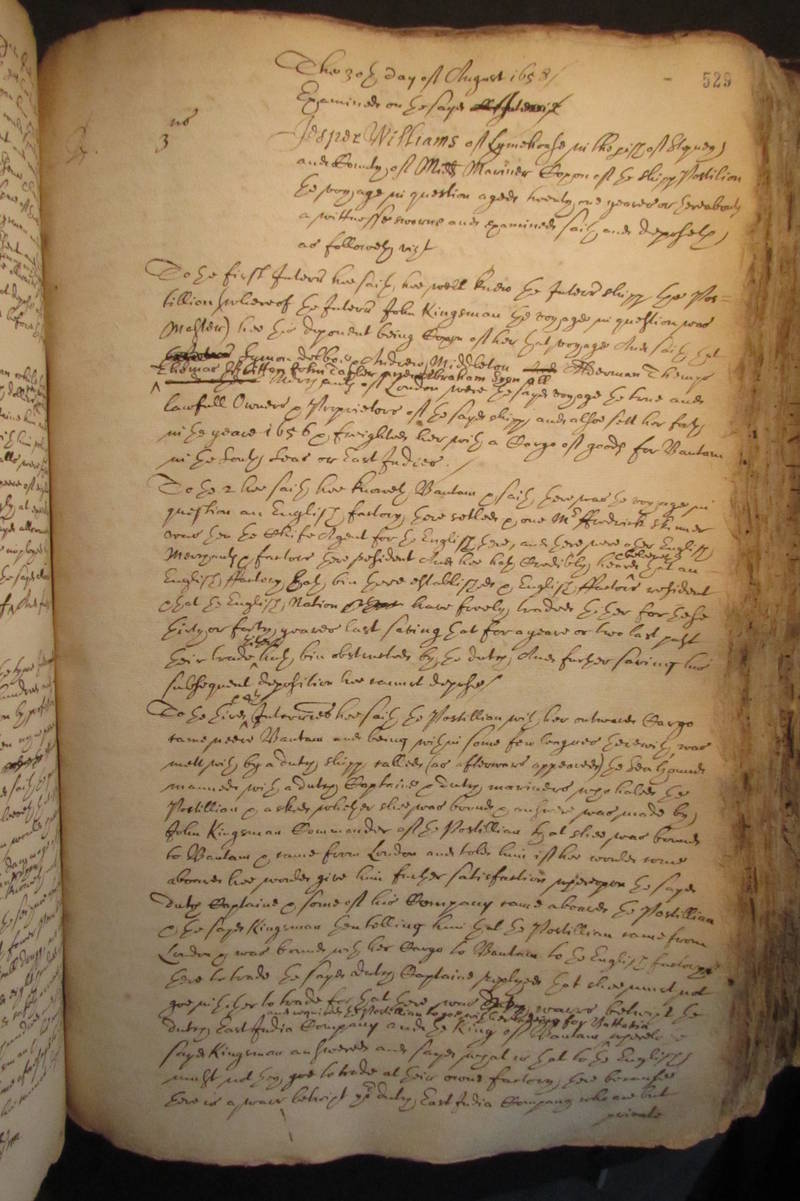 529
The 30th day of August 1658
Examined on the sayd
3us
Jesper Williams of Lymehouse in the parish of Stepney
and County of Midd Mariner Coxon of the shipp Postilion
the voyage in question aged twenty one yeares or thereabouts
a wittnesse sworne and examined saith and deposeth
as followeth vizt
To the first Interr hee saith, hee well knew the Interr shipp the Pos=
tillion (whereof the Interr John Kingsman the voyage in question was
Master) hee this deponent being Coxon of her that voyage And saith that
Symon Andrew Middleton Alderman Thomas
Thomas John Abraham all
Merchants of London were the sayd voyage the true and
lawfull Owners & Proprietors of the sayd shipp and alsoe sett her forth
in the yeare 1656 & freighted her with a Cargo of goods for Bantam
in the South Seas or East Indies.
To the 2 hee saith hee knoweth Bantam & saith there was the voyage in
question an English factory there setled & one Mr Ffrederick Skinner
was then the Chiefe Agent for the English there, and there were other English
Merchants & factors there resident And hee hath credibly heard that an
English ffactory hath bin there established & English ffactors resident
& that the English Nation have freely traded thither for these
thirty or forty yeares last saving that for a yeare or two last past
their trade hath bin obstructed by the dutch, And further saving his
subsequent deposition hee cannot depose
To the third Interries hee saith the Postillian with her outwards Cargo
came neere Bantam and being within some few leagues therewith was
mett with by a dutch shipp called (as afterwards appeared) the Seahound
manned with a dutch Captaine & dutch mariners who haled the
Postillian & asked whither shee was bound & answere was made by
John Kingsman Commander of the Postillian that shee was bound
to Bantam & came from London and told him if hee would come
aboard hee would give him further satisfaction whereupon the sayd
dutch Captaine & some of his Company came aboard the Postillian
& the sayd Kingsman then telling him that the Postillian came from
London & was bound with her Cargo to Bantam to the English factory
there to trade the sayd dutch Captaine replyed that shee must not
goe thither to trade for that there was warre betwixt the
and required the Postillian to goe with for Battavia
dutch East India Company and the King of Bantam
sayd Kingsman answered and sayd what is that to the English
must not they goe to trade at their owne factory there because
there is a warr betwixt the dutch East India Company who are but
private